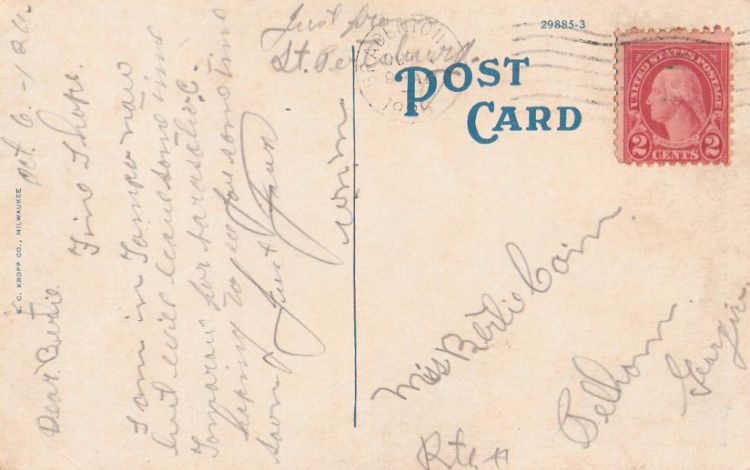 Oct. 6. - 126.
Dear Bertie.
Fine I hope.
I am in Tampa now
but will leave some time
Tomparow for Sarasota.
hoping to see you some time
soon
Just from
St. Petersburg.
POST
CARD
29885-3
UNITED STATES POSTAGE
2 CENTS 2
Miss Bertie Cain
Pelham.
Georgia
Rte
E. C. KROPP CO., MILWAUKEE